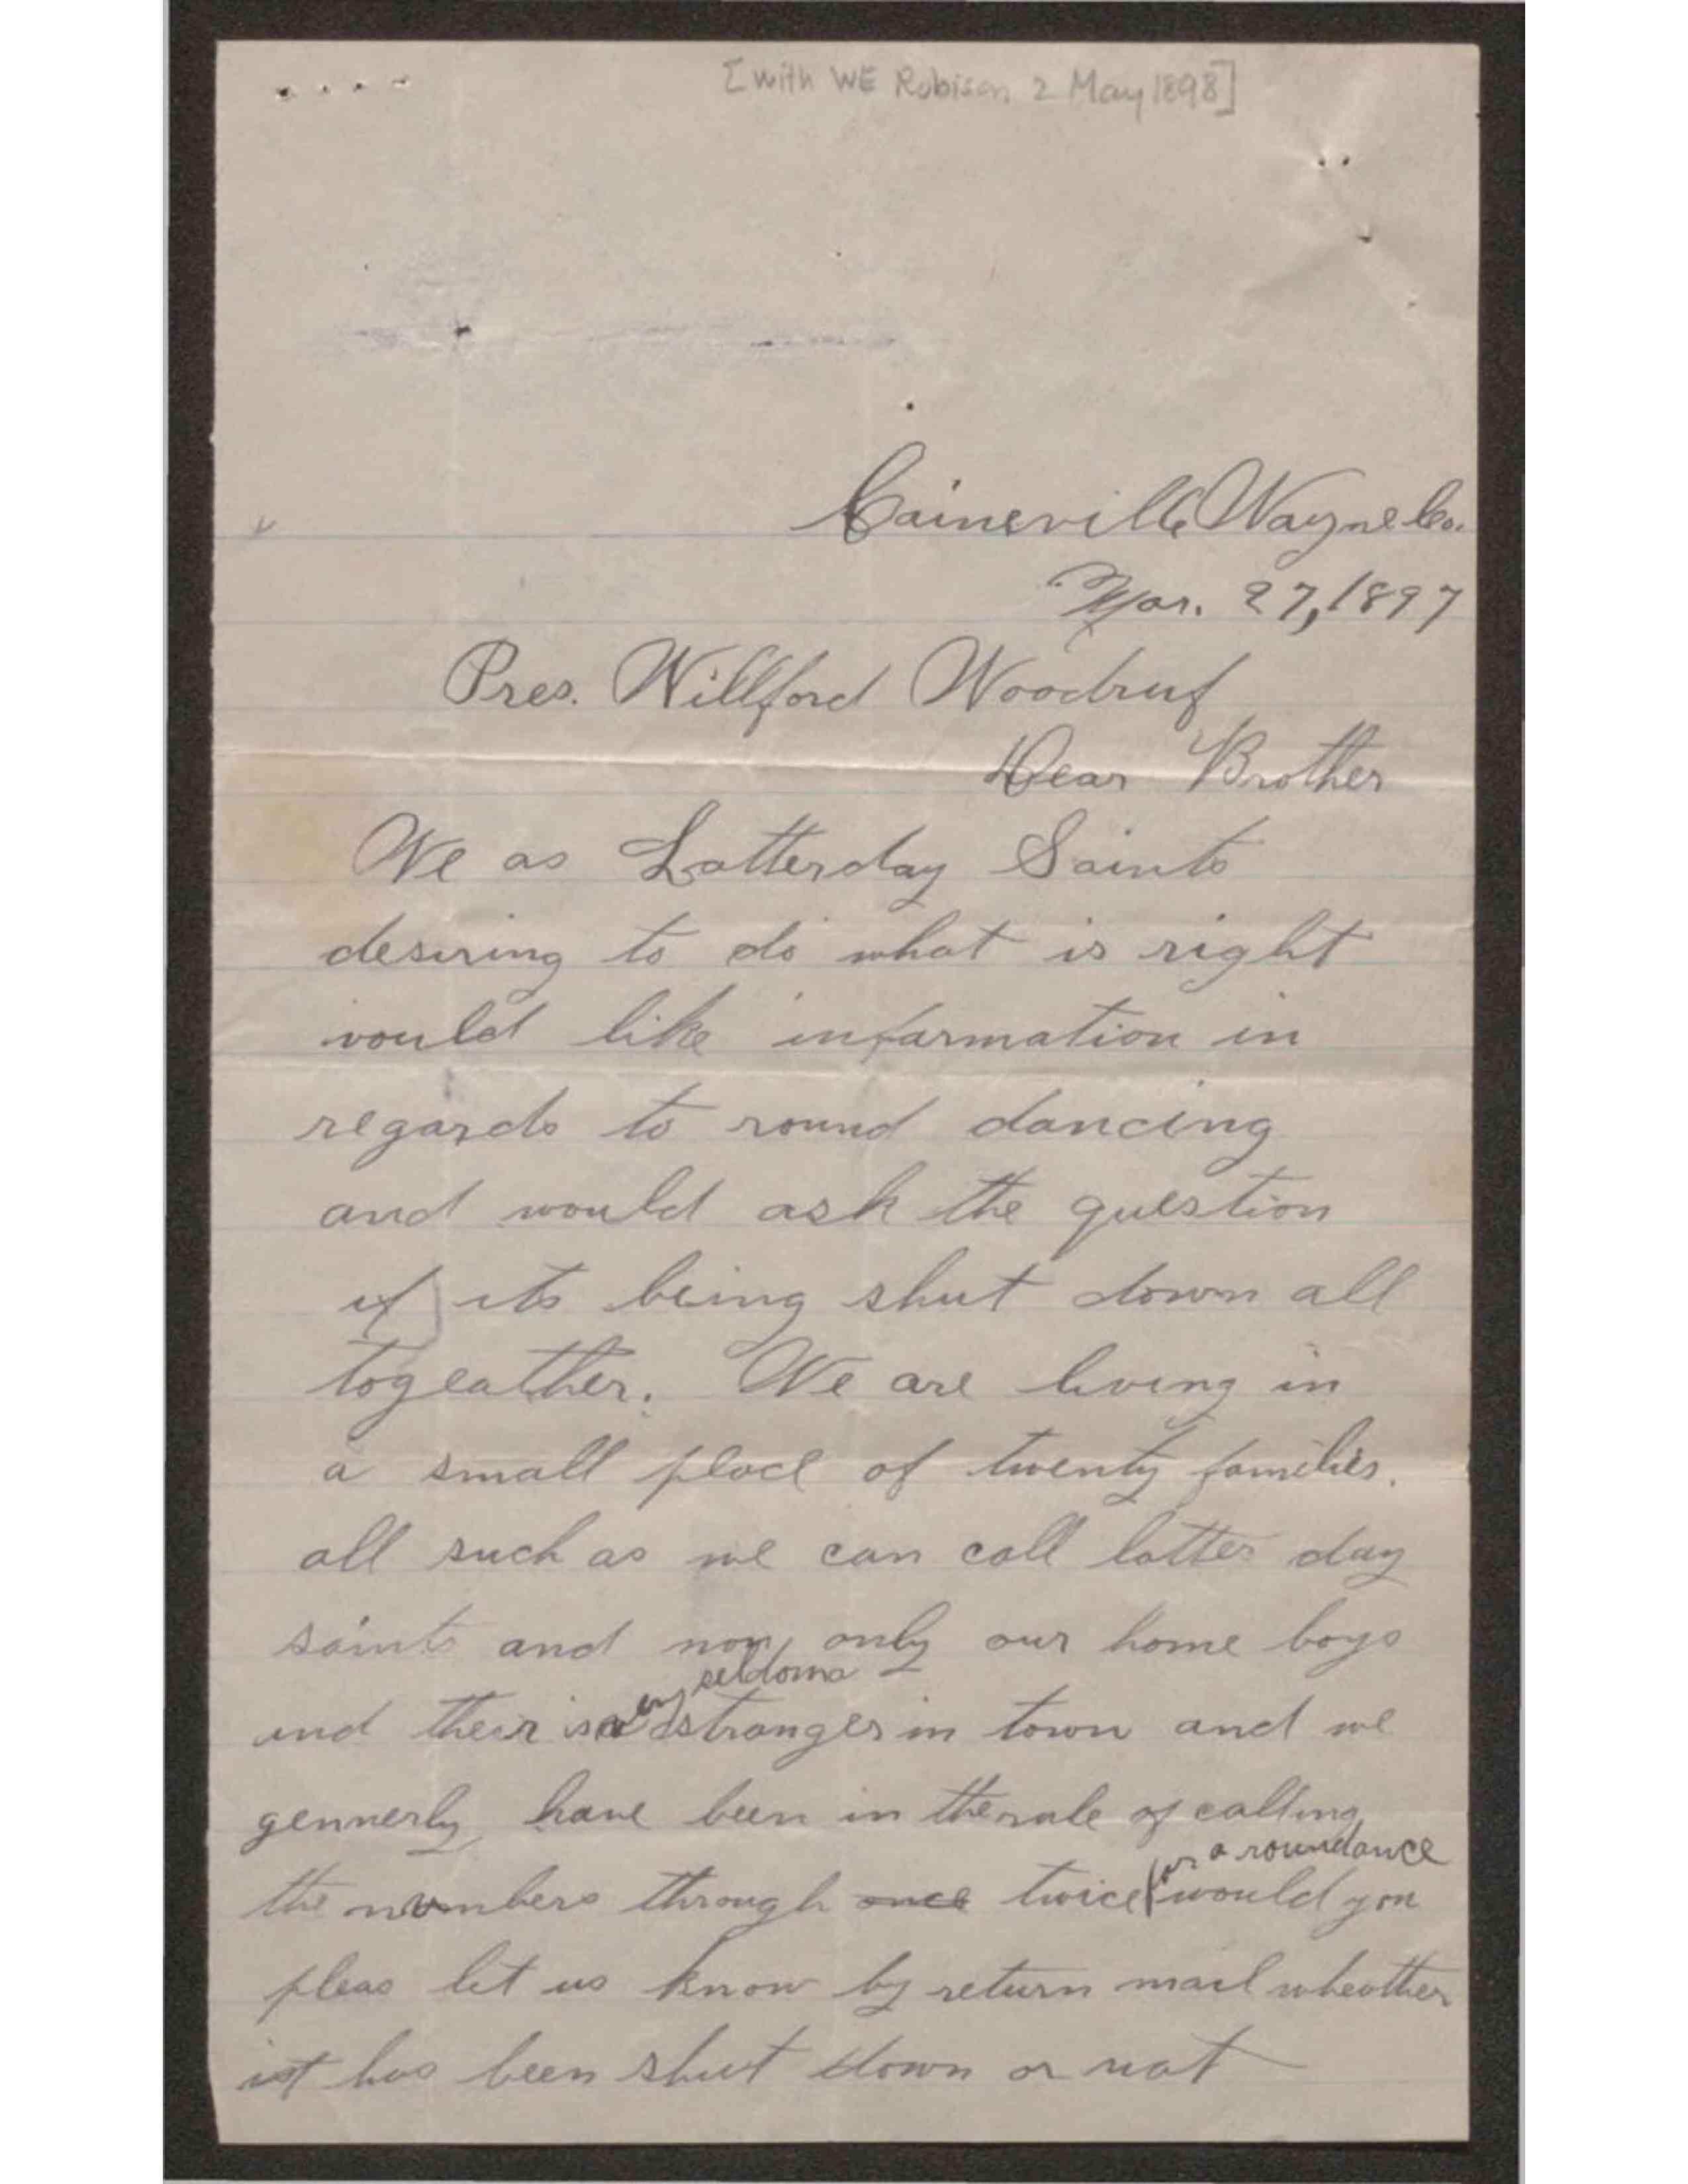 [with WE Robison 2 May 1898]
Caineville Wayne Co.
Mar. 27, 1897
Pres. Willford Woodruf
Dear Brother
We as Latterday Saints
desiring to do what is right
would like information in
regards to round dancing
and would ask the question
if its being shut down all
togeather. We are living in
a small place of twenty families.
all such as we can call latter day
saints and now only our home boys
very seldoma
and their is a stranger in town and we
gennerly have been in the rule of calling
for a roundance
the numbers through once twice would you
pleas let us know by return mail wheather
it has been shut down or not